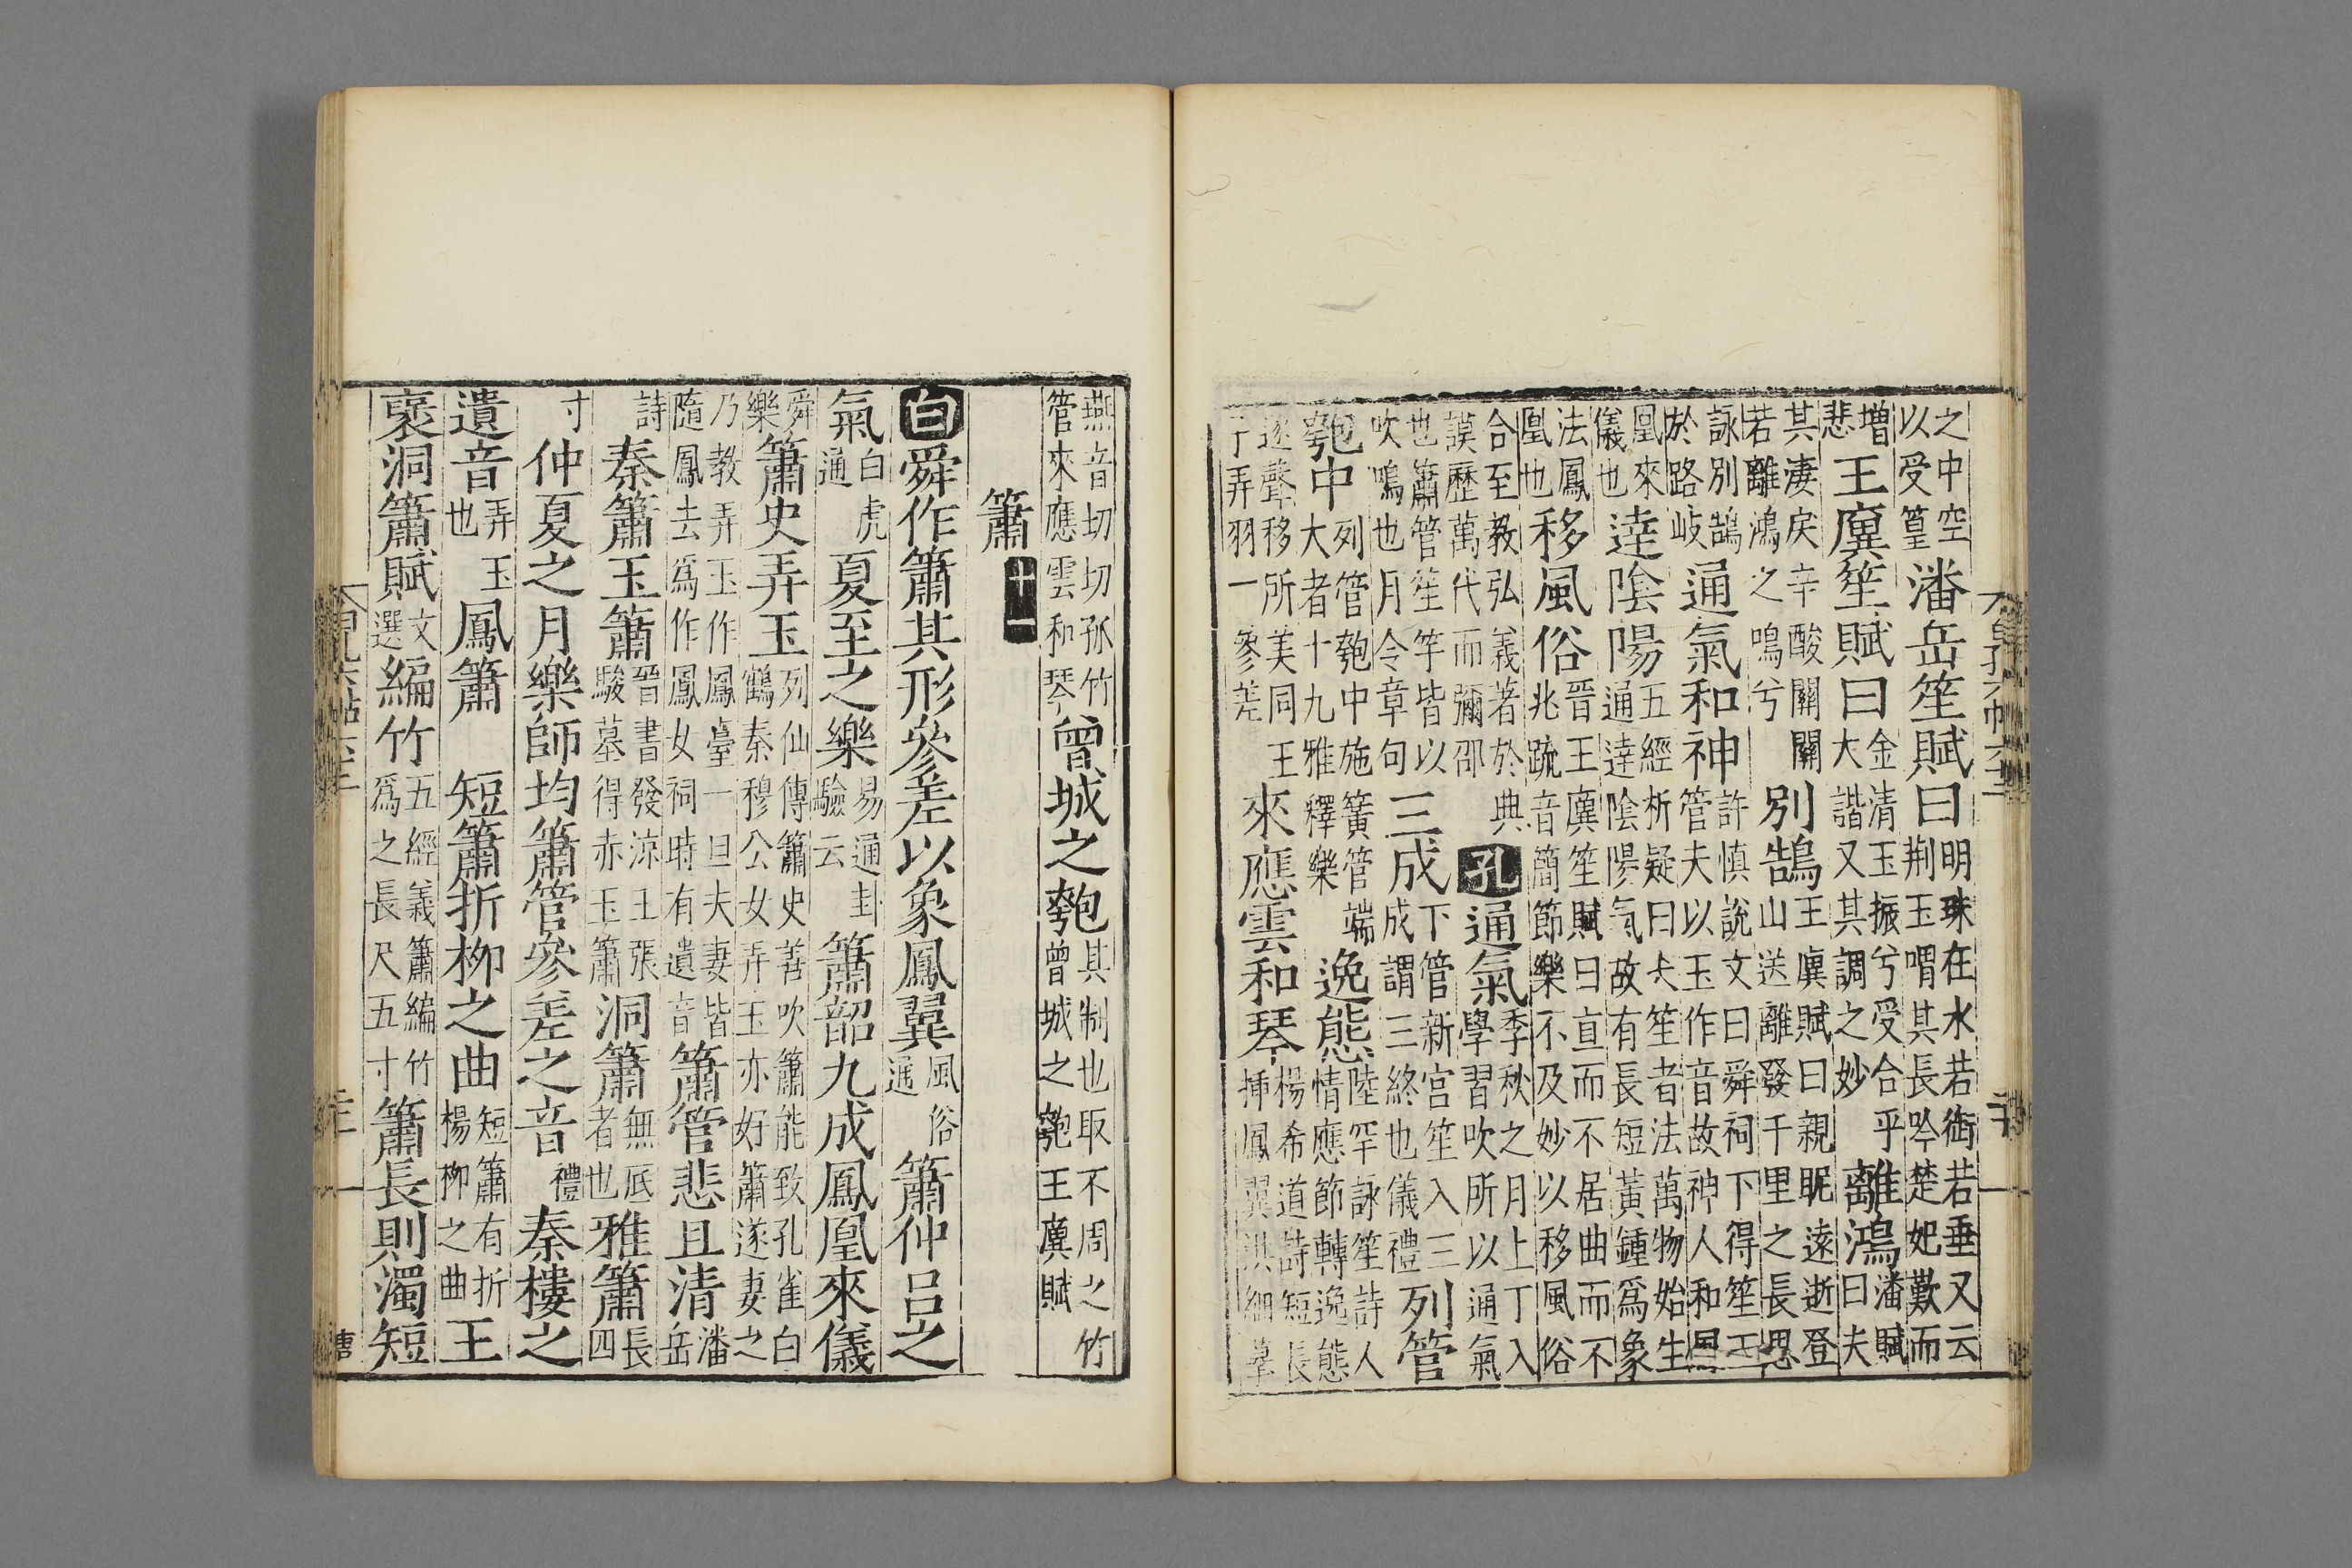 之中空以受篁潘岳笙賦曰明珠在水若銜若垂又云荆玉喟其長吟楚妃歎而
増悲王廙笙賦曰金清玉振兮受合乎大諧又其調之妙離鴻潘賦曰夫
其凄戾辛酸關關若離鴻之鳴兮別鵠王廙賦曰親昵遠逝登山送離發千里之長思
詠別鵠於路岐通氣和神許慎說文曰舜祠下得笙玉管夫以玉作音故神人和鳳
凰來儀也逹陰陽五經析疑曰大笙者法萬物始生通逹陰陽氣故有長短黃鍾爲象
法鳳凰也移風俗晉王廙笙賦曰直而不居曲而不兆䟽音簡節樂不及妙以移風俗
合至教弘義著於典謨歷萬代而彌邵孔通氣季秋之月上丁入學習吹所以通氣
也簫管笙竽皆以吹鳴也月令章句三成下管新宫笙入三成謂三終也儀禮列管
匏中列管匏中施簧管端大者十九雅釋樂逸態陸罕詠笙詩人情應節轉逸態
逐聲移所美同王子弄羽一參差來應雲和琴楊希道詩短長插鳳翼洪細摹
燕音切切孤竹管來應雲和琴曾城之匏其制也取不周之竹曾城之匏王廙賦
簫十一
白舜作簫其形參差以象鳳翼風俗通簫仲呂之
氣白虎通夏至之樂易通卦驗云簫韶九成鳳凰來儀
舜樂簫史弄玉列仙傳簫史善吹簫能致孔雀白鶴秦穆公女弄玉亦好簫遂妻之
乃教弄玉作鳳臺一旦夫妻皆隨鳳去爲作鳳女祠時有遺音簫管悲且清潘岳
詩秦簫玉簫晉書發涼王張駿墓得赤玉簫洞簫無底者也雅簫長四
寸仲夏之月樂師均簫管參差之音禮秦樓之
遺音弄玉也鳳簫短簫折柳之曲短簫有折楊柳之曲王
褒洞簫賦文選編竹五經義簫編竹爲之長尺五寸簫長則濁短